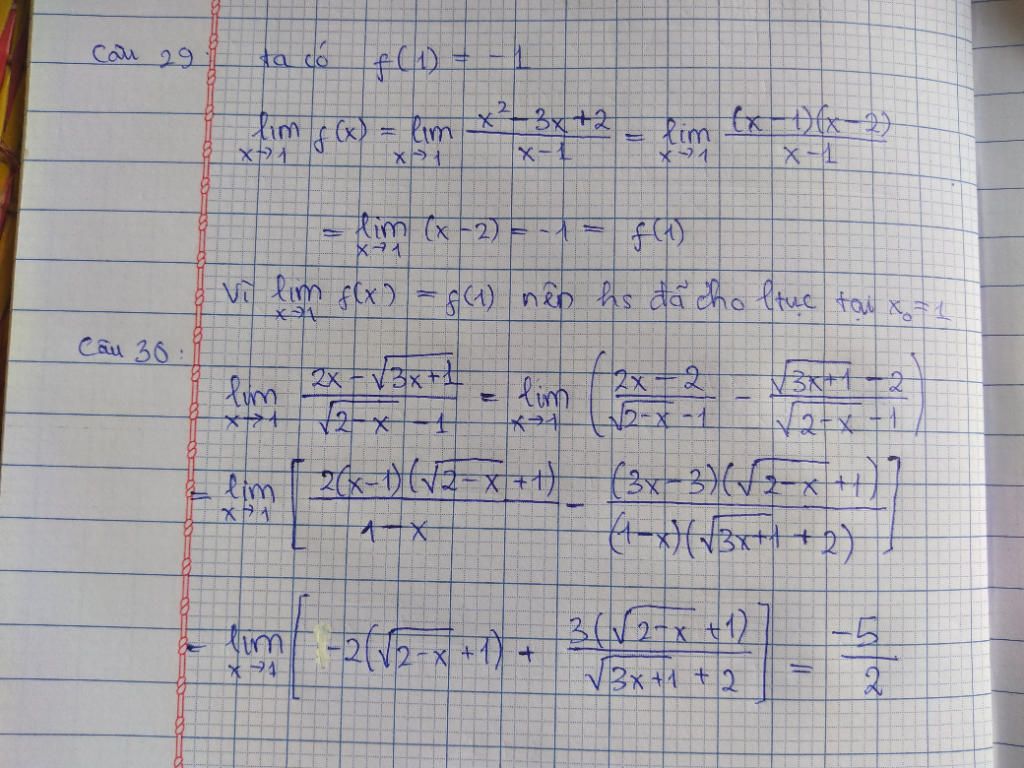 Câu 29: ta có f(1) = -1
lim x→1 f(x) = lim x→1 (x² - 3x + 2)/(x - 1) = lim x→1 (x - 1)(x - 2)/(x - 1)
= lim x→1 (x - 2) = -1 = f(1)
Vì lim x→1 f(x) = f(1) nên hs đã cho ltục tại x₀ = 1
Câu 30:
lim x→1 (2x - √(3x+1))/(√(2-x) - 1) = lim x→1 ((2x - 2)/(√(2-x) - 1) - (√(3x+1) - 2)/(√(2-x) - 1))
= lim x→1 [2(x-1)(√(2-x) + 1)/(1 - x) - (3x - 3)(√(2-x) + 1)/((1-x)(√(3x+1) + 2))]
= lim x→1 [-2(√(2-x) + 1) + 3(√(2-x) + 1)/(√(3x+1) + 2)] = -5/2